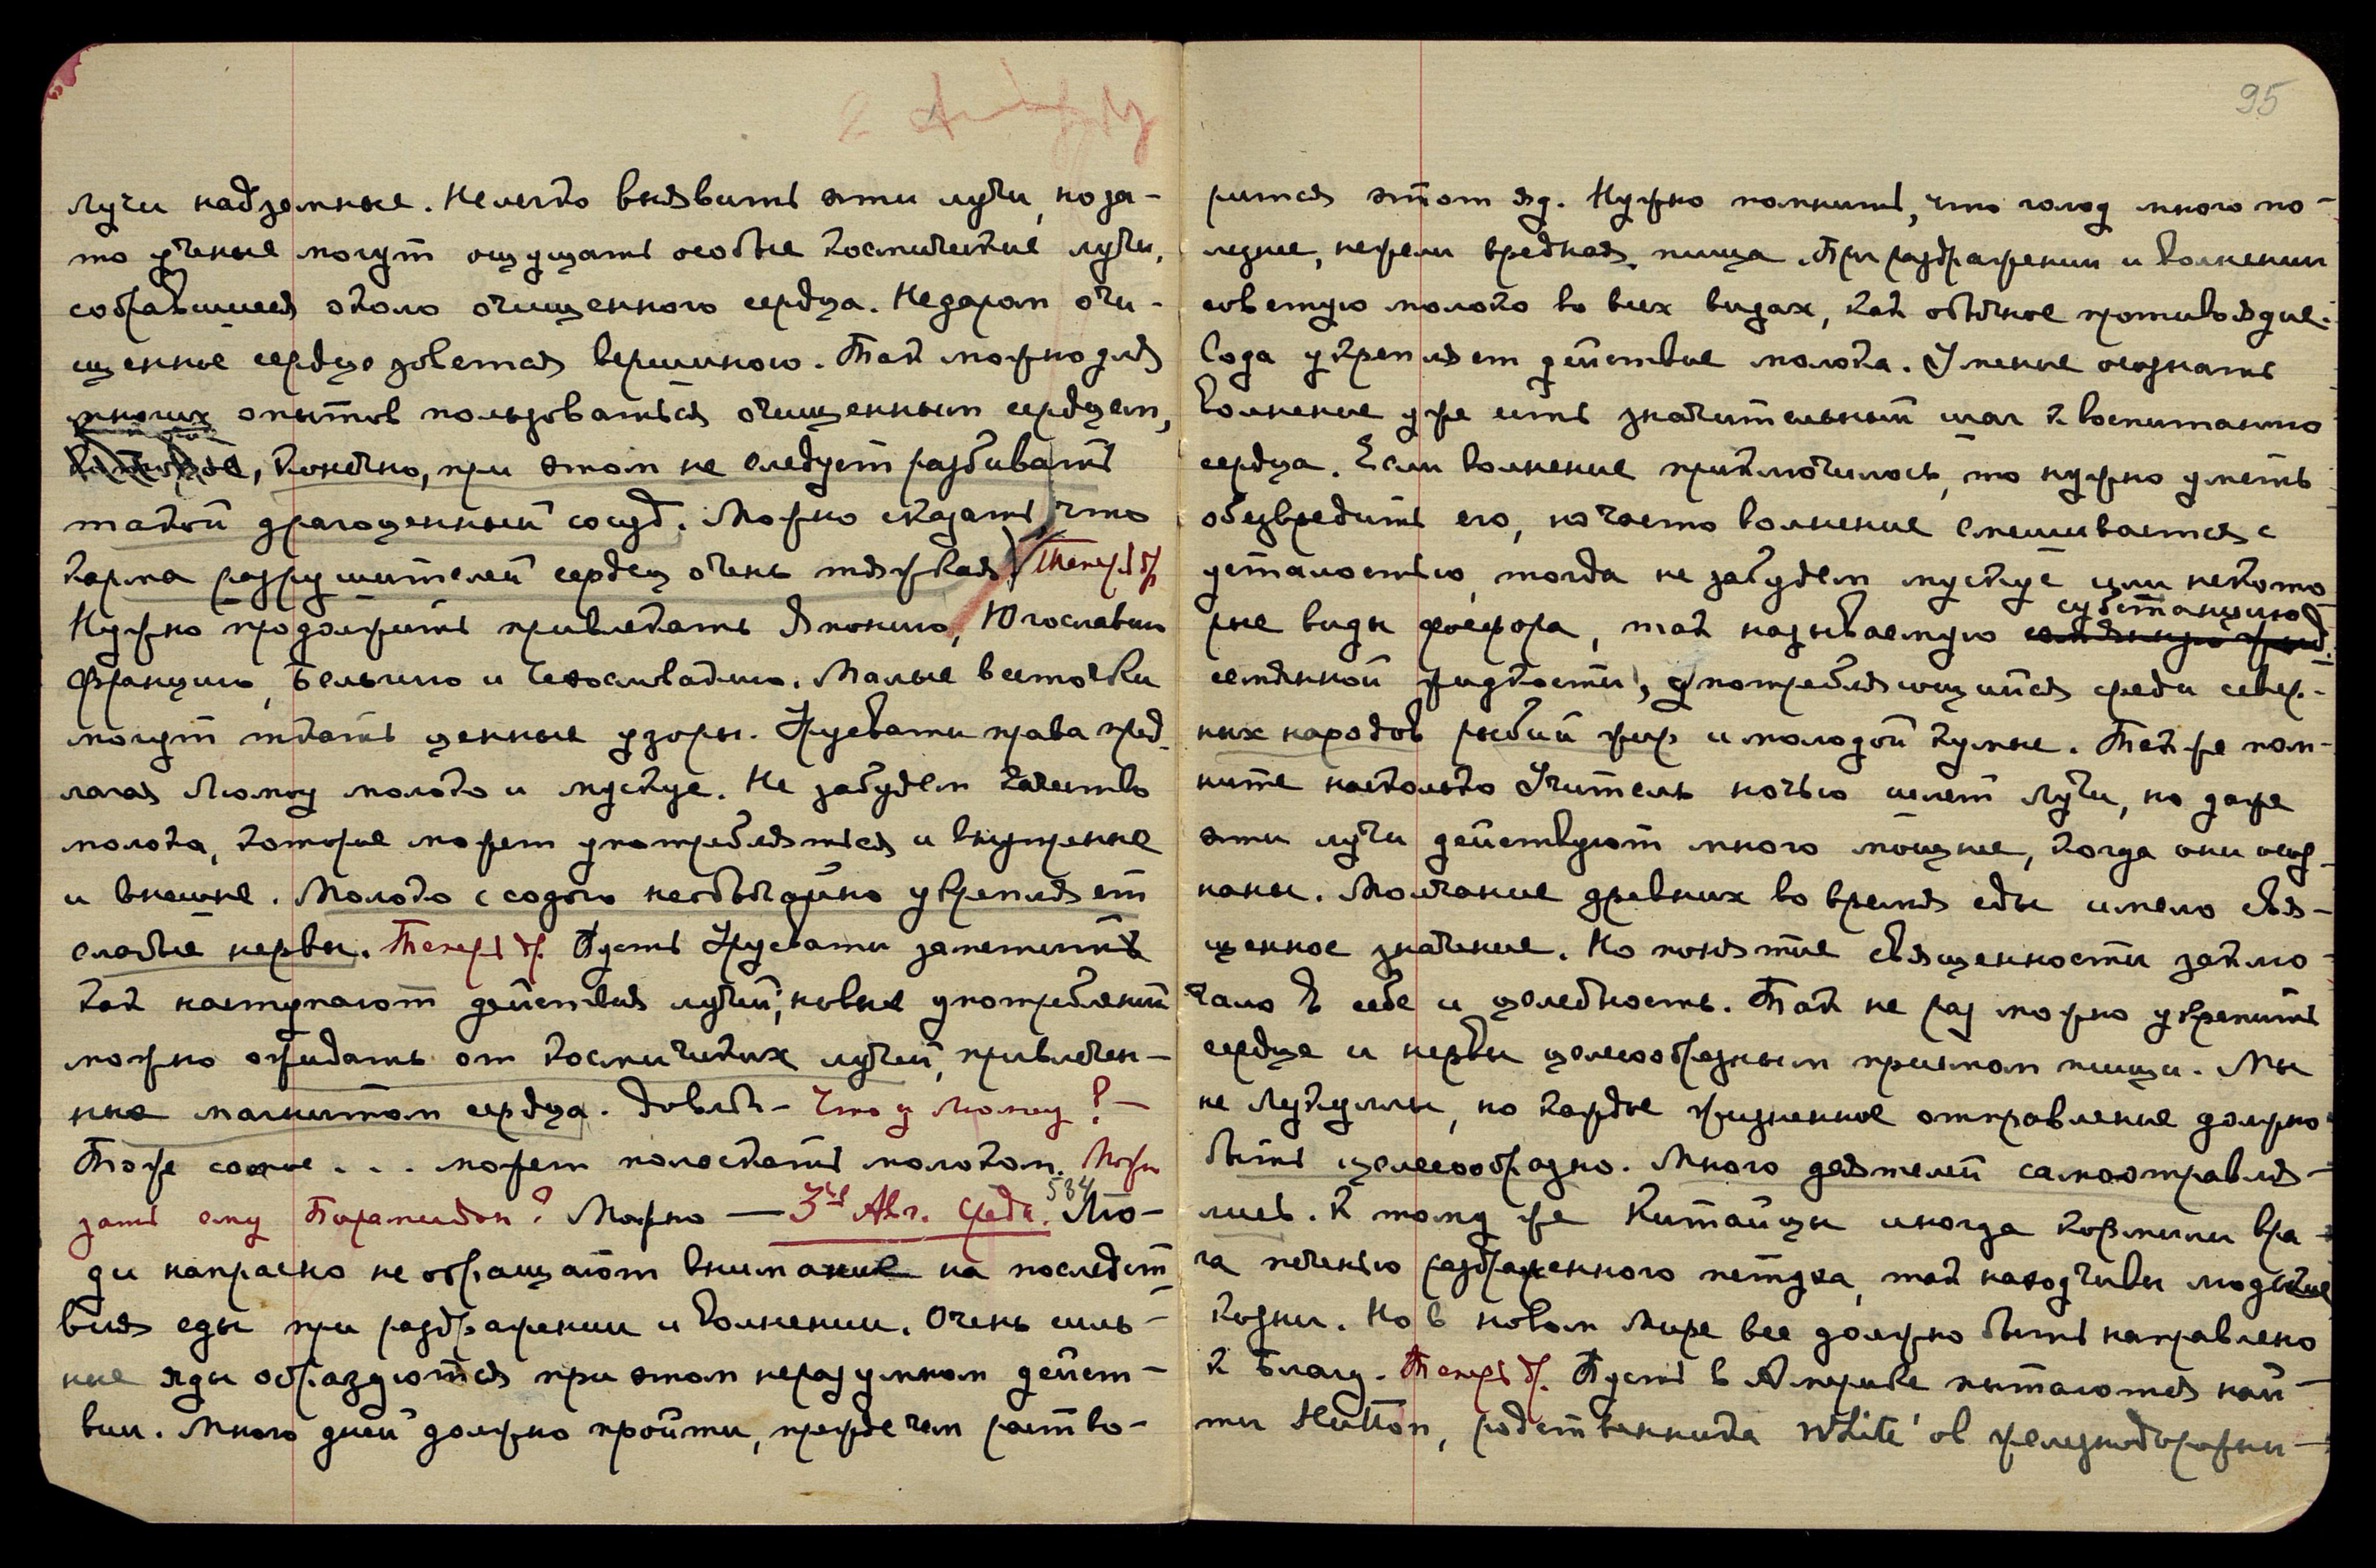 95
лучи надземные. Нелегко выявить эти лучи, но за-
то ученые могут ощущать особые космические лучи,
собравшиеся около очищенного сердца. Недаром очи-
щенное сердце зовется вершиною. Так можно для
многих опытов пользоваться очищенным сердцем,
конечно, при этом не следует разбивать
такой драгоценный сосуд. Можно сказать, что
карма разрушителей сердец очень тяжкая. Теперь др.
Нужно продолжить привлекать Японию, Югославию
Францию, Бельгию и Чехословакию. Малые весточки
могут ткать ценные узоры. Урусвати права пред-
лагая Люмоу молоко и мускус. Не забудем качество
молока, которое может употребляться и внутренне
и внешне. Молоко с содою необычайно укрепляет
слабые нервы. Теперь др. Пусть Урусвати заметит
как наступают действия лучей, новых употреблений
можно ожидать от космических лучей, привлечен-
ных магнитом сердца. Довльо – Что у Люмоу? –
Тоже самое . . . может полоскать молоком. Мож
зать ему Пирамидон? Можно — 3го Авг. Среда. 584 Лю-
ди напрасно не обращают внимание на последст
вия еды при раздражении и волнении. Очень силь-
ные яды образуются при этом неразумном дейст-
вии. Много дней должно пройти, прежде чем раство-
рится этот яд. Нужно помнить, что голод много по-
лезнее, нежели вредная пища. При раздражении и волнении
советую молоко во всех видах, как обычное противоядие.
Сода укрепляет действие молока. Умение осознать
волнение уже есть значительный шаг к воспитанию
сердца. Если волнение приключилось, то нужно уметь
обезвредить его, но часто волнение смешивается с
усталостью, тогда не забудем мускус или некото
рые виды фосфора, так называемую субстанцию
семянной жидкости, употребляющийся среди север-
ных народов рыбий жир и молодой кумыс. Также пом-
ните насколько Учитель ночью шлет лучи, но даже
эти лучи действуют много мощнее, когда они осоз-
наны. Молчание древних во время еды имело свя-
щенное значение. Но понятие священности заклю-
чало в себе и целебность. Так не раз можно укрепить
сердце и нервы целесообразным приемом пищи. Мы
не Лукуллы, но каждое жизненное отправление должно
быть целесообразно. Много деятелей самоотравля-
лись. К тому же Китайцы иногда кормили вра-
га печенью раздраженного петуха, так находчивы людские
козни. Но в новом Мире все должно быть направлено
к Благу. Теперь др. Пусть в Америке пытаются най-
ти Hutton, родственника White'ов железнодорожни-